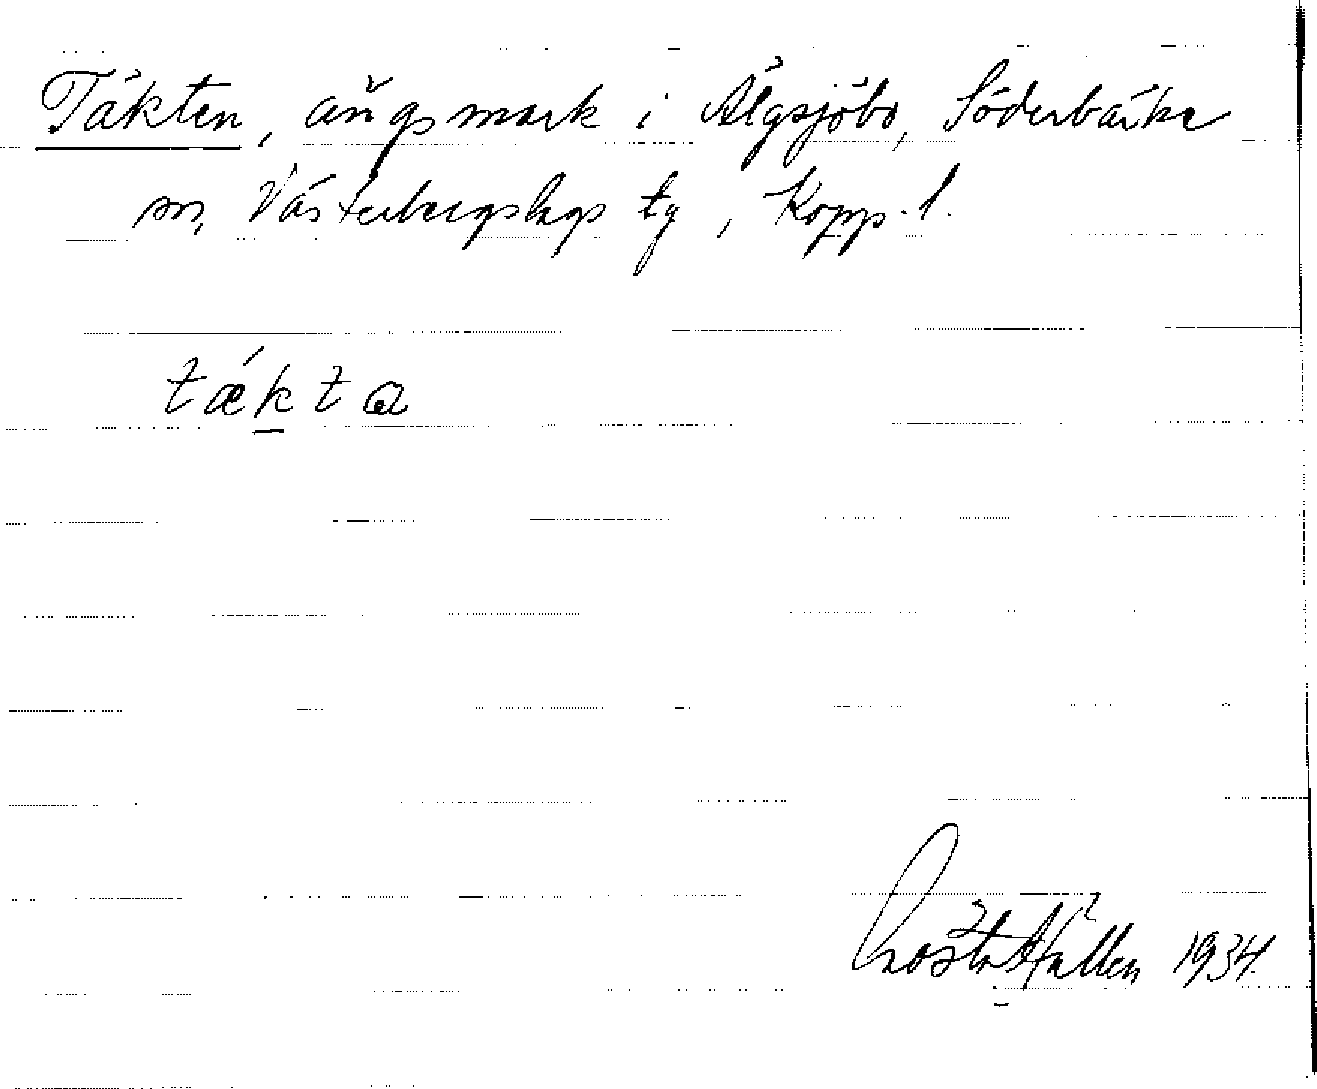 Täkten, ängsmark i Älgsjöbo, Söderbärke
sn, Västerbergslags tg, Kopp. l.
tǽkta
Gösta Hallen 1934.